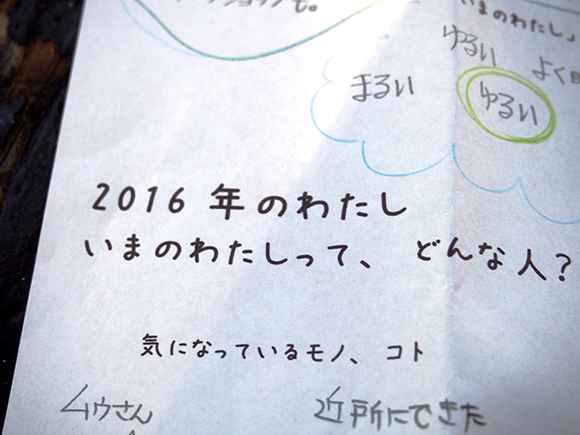 ショップも。
いまのわたし」
ゆるい
よく
まるい
ゆるい
2016 年のわたし
いまのわたしって、 どんな人?
気になっているモノ、 コト
ムウさん
近所にできた